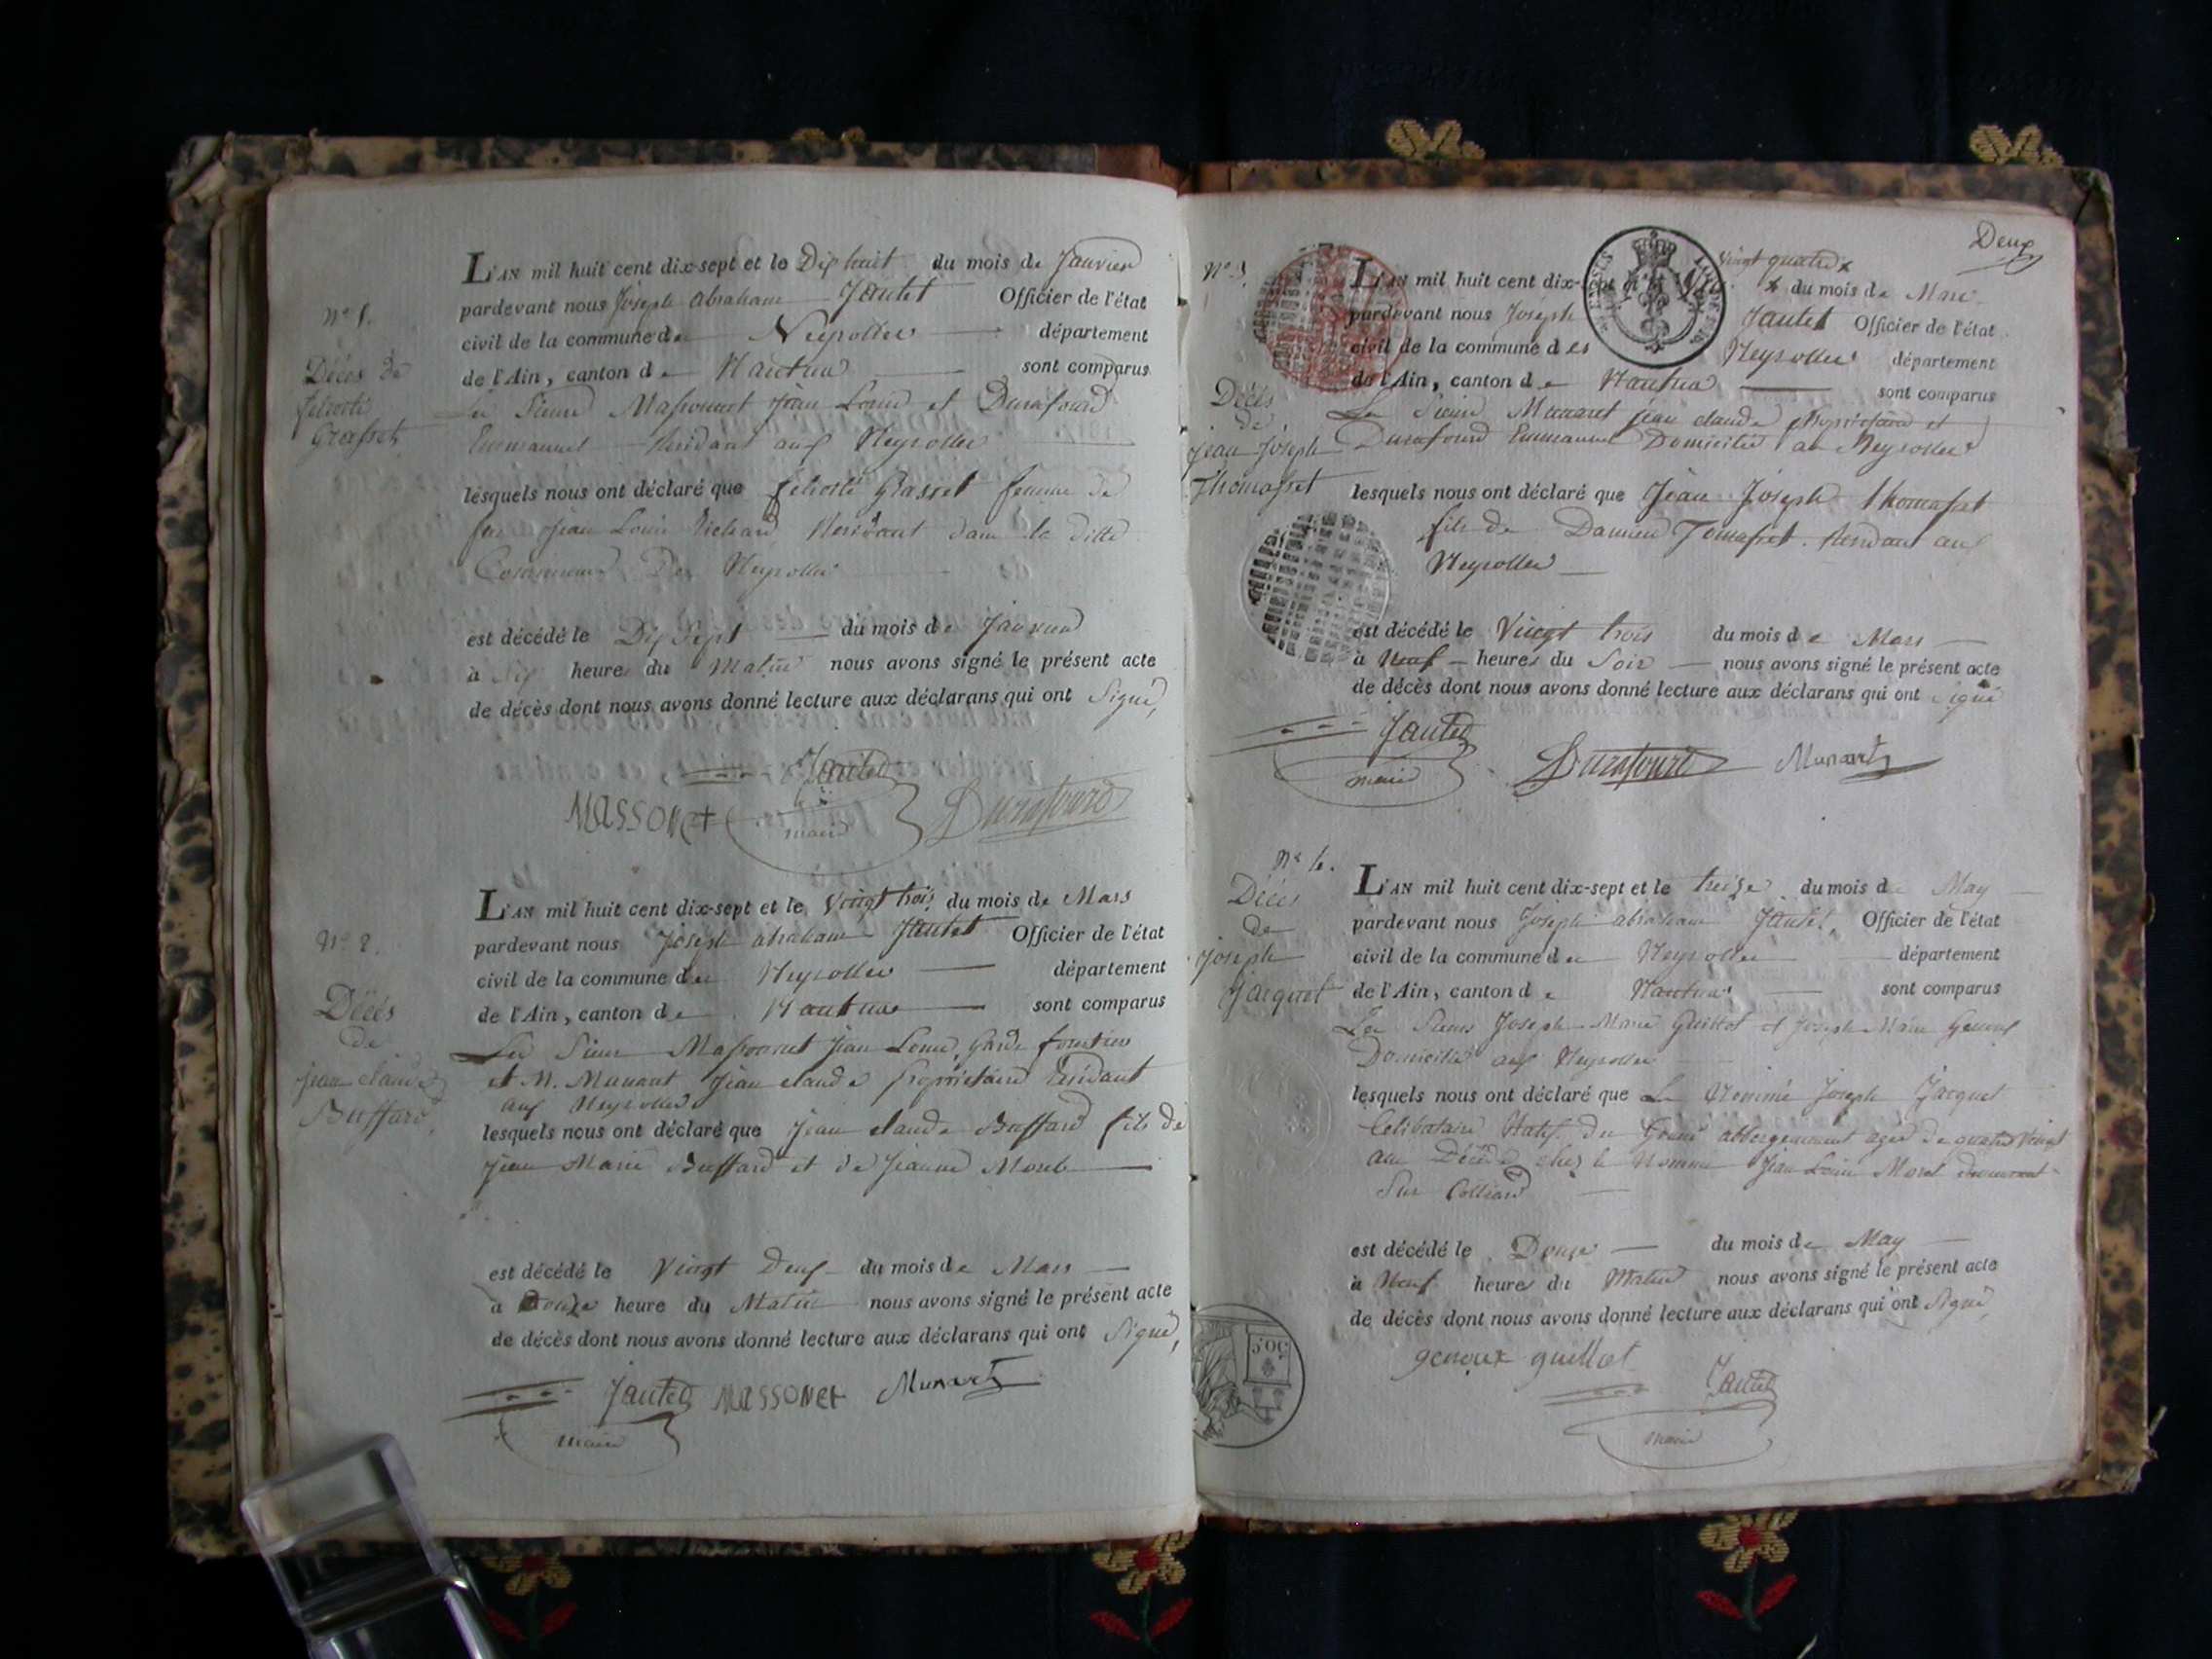 N° 1.
Décès de
félicité
Grasset
L'AN mil huit cent dix-sept et le Dix huit du mois de Janvier
pardevant nous Joseph abraham Jantet Officier de l'état
civil de la commune des Neyrolles département
de l'Ain, canton de Nantua sont comparus
Les Sieurs Massonnet jean Louis et Durafourd
Emmanuel Résidant aux Neyrolles
lesquels nous ont déclaré que félicité Grasset femme de
feu jean Louis Richard Résidant dans la ditte
Commune Des Neyrolles
est décédé le Dix Sept du mois de Janvier
à Six heures du Matin nous avons signé le présent acte
de décès dont nous avons donné lecture aux déclarans qui ont Signé,
Jantet
MASSONet maire Durafourd
N° 2.
Décès
de
jean claude
Buffard,
L'AN mil huit cent dix-sept et le vingt trois du mois de Mars
pardevant nous Joseph abraham Jantet Officier de l'état
civil de la commune des Neyrolles département
de l'Ain, canton de Nantua sont comparus
Les Sieurs Massonnet Jean Louis, garde forestier
et M. Munaret Jean claude proprietaire Résidant
aux Neyrolles
lesquels nous ont déclaré que jean claude Buffard fils de
jean Marie Buffard et de Jeanne Morel
est décédé le Vingt Deux du mois de Mars
à Douze heure du Matin nous avons signé le présent acte
de décès dont nous avons donné lecture aux déclarans qui ont Signé,
Jantet MASSONet Munaret
maire
Deux
N° 3.
Décès
de
jean joseph
Thomasset
L'AN mil huit cent dix-sept et le vingt quatre du mois de Mars
pardevant nous Joseph Jantet Officier de l'état
civil de la commune des Neyrolles département
de l'Ain, canton de Nantua sont comparus
Les Sieurs Munaret jean claude proprietaire et
Durafourd Emmanuel Domicilié au Neyrolles
lesquels nous ont déclaré que Jean Joseph thomasset
fils de Damien Tomasset. Résidant aux
Neyrolles
est décédé le Vingt trois du mois de Mars
à Neuf heures du Soir nous avons signé le présent acte
de décès dont nous avons donné lecture aux déclarans qui ont signé
Jantet
maire Durafourd Munaret
N° 4.
Décès
de
joseph
Jacquet
L'AN mil huit cent dix-sept et le treize du mois de May
pardevant nous Joseph abraham Jantet, Officier de l'état
civil de la commune des Neyrolles département
de l'Ain, canton de Nantua sont comparus
Les Sieurs Joseph Marie Guillot et joseph Marie Genoux
Domicilié aux Neyrolles
lesquels nous ont déclaré que Le Nommé Joseph Jacquet
Celibataire Natif du Grand abbergement agé de quatre Vingt
ans Décédé chez le Nommé Jean Louis Morel
Sur Colliard
est décédé le Douze du mois de May
à Neuf heures du Matin nous avons signé le présent acte
de décès dont nous avons donné lecture aux déclarans qui ont Signé,
genoux guillot Jantet
maire